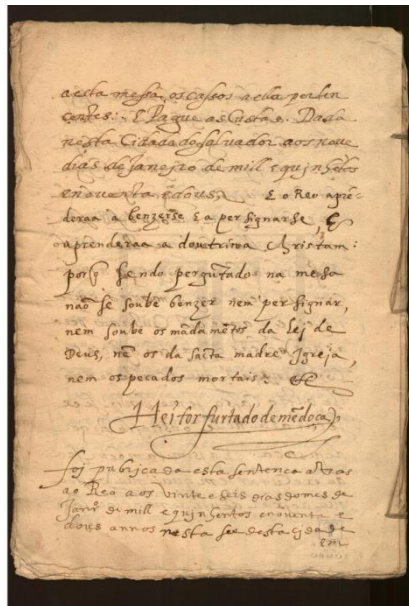 a esta messa, os cassos a ella perten
centes: E pague as Custas. Dada
nesta Cidade do Salvador aos noue
dias de Janeiro de mill e quinhẽtos
e nouenta e dous, E o Reo apre-
deraa a benzerse e a persignarse, E
aprenderaa a doutrina Christam:
porq̃ sendo pergũtado na mesa
não se soube benzer nem persignar,
nem soube os mãdamẽtos da lei de
Deus, nẽ os da sãcta madre Igreja,
nem os pecados mortais.
Heitor furtado de mẽdoça
foi publicada esta sentenca atras
ao Reo a os vinte e seis dias do mes de
Janr.º de mill e quinhentos e nouenta e
dous annos nesta see desta cidade